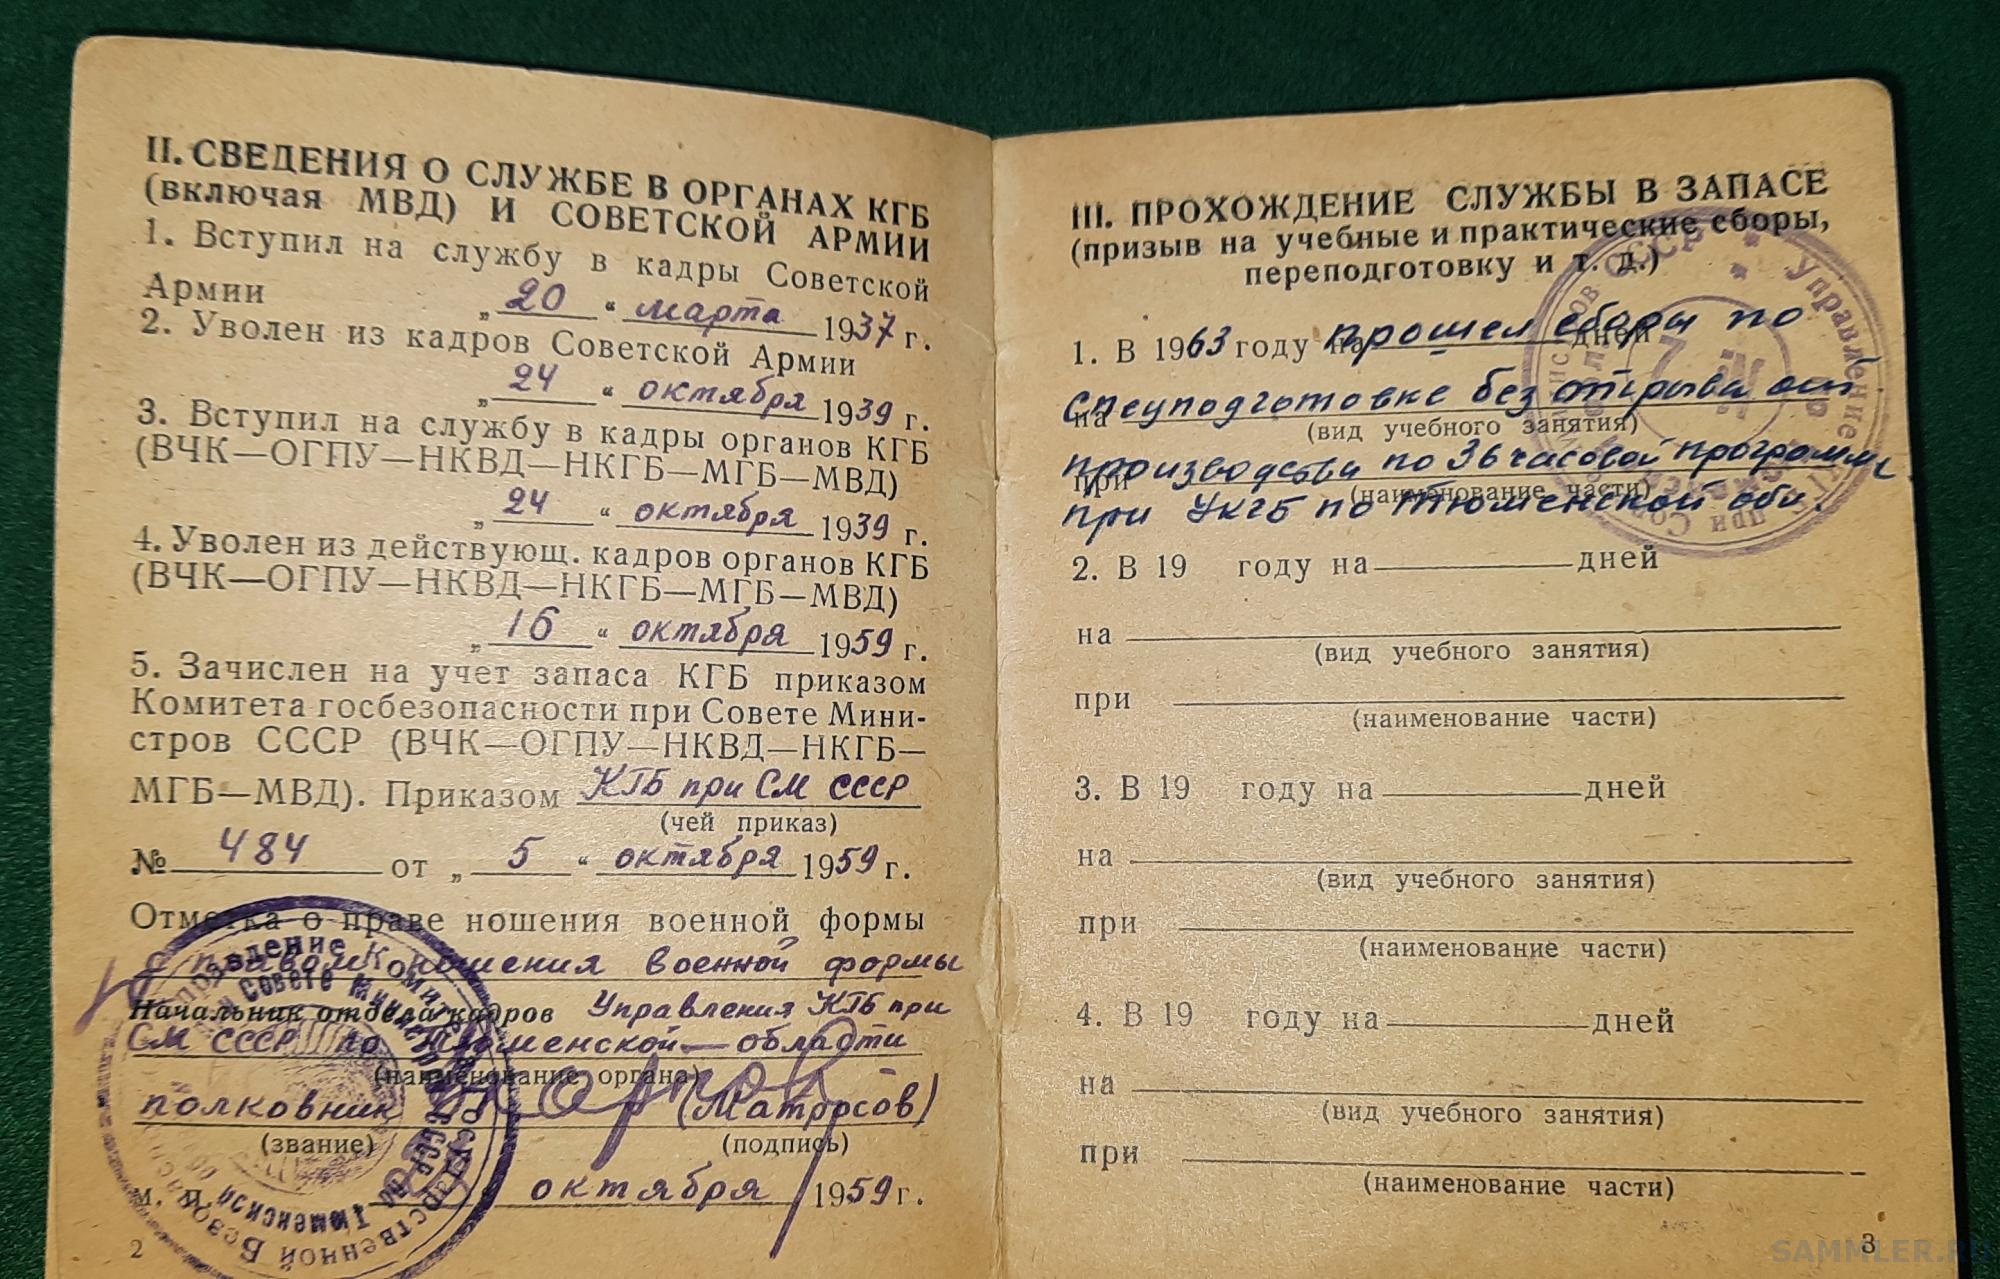 II. СВЕДЕНИЯ О СЛУЖБЕ В ОРГАНАХ КГБ
(включая МВД) И СОВЕТСКОЙ АРМИИ
1. Вступил на службу в кадры Советской
Армии „20“ марта 1937 г.
2. Уволен из кадров Советской Армии
„24“ октября 1939 г.
3. Вступил на службу в кадры органов КГБ
(ВЧК—ОГПУ—НКВД—НКГБ—МГБ—МВД)
„24“ октября 1939 г.
4. Уволен из действующ. кадров органов КГБ
(ВЧК—ОГПУ—НКВД—НКГБ—МГБ—МВД)
„16“ октября 1959 г.
5. Зачислен на учет запаса КГБ приказом
Комитета госбезопасности при Совете Мини-
стров СССР (ВЧК—ОГПУ—НКВД—НКГБ—
МГБ—МВД). Приказом КГБ при СМ СССР
(чей приказ)
№ 484 от „5“ октября 1959 г.
Отметка о праве ношения военной формы
с правом ношения военной формы
Начальник отдела кадров Управления КГБ при
СМ СССР по Тюменской области
(наименование органа)
полковник (Маторсов)
(звание) (подпись)
м. п. октября 1959 г.
2
III. ПРОХОЖДЕНИЕ СЛУЖБЫ В ЗАПАСЕ
(призыв на учебные и практические сборы,
переподготовку и т. д.)
1. В 1963 году на прошел сборы по дней
на спецподготовке без отрыва от
(вид учебного занятия)
при производства по 36 часовой программе
(наименование части)
при УКГБ по Тюменской обл.
2. В 19 году на дней
на
(вид учебного занятия)
при
(наименование части)
3. В 19 году на дней
на
(вид учебного занятия)
при
(наименование части)
4. В 19 году на дней
на
(вид учебного занятия)
при
(наименование части)
3
SAMMLER.RU